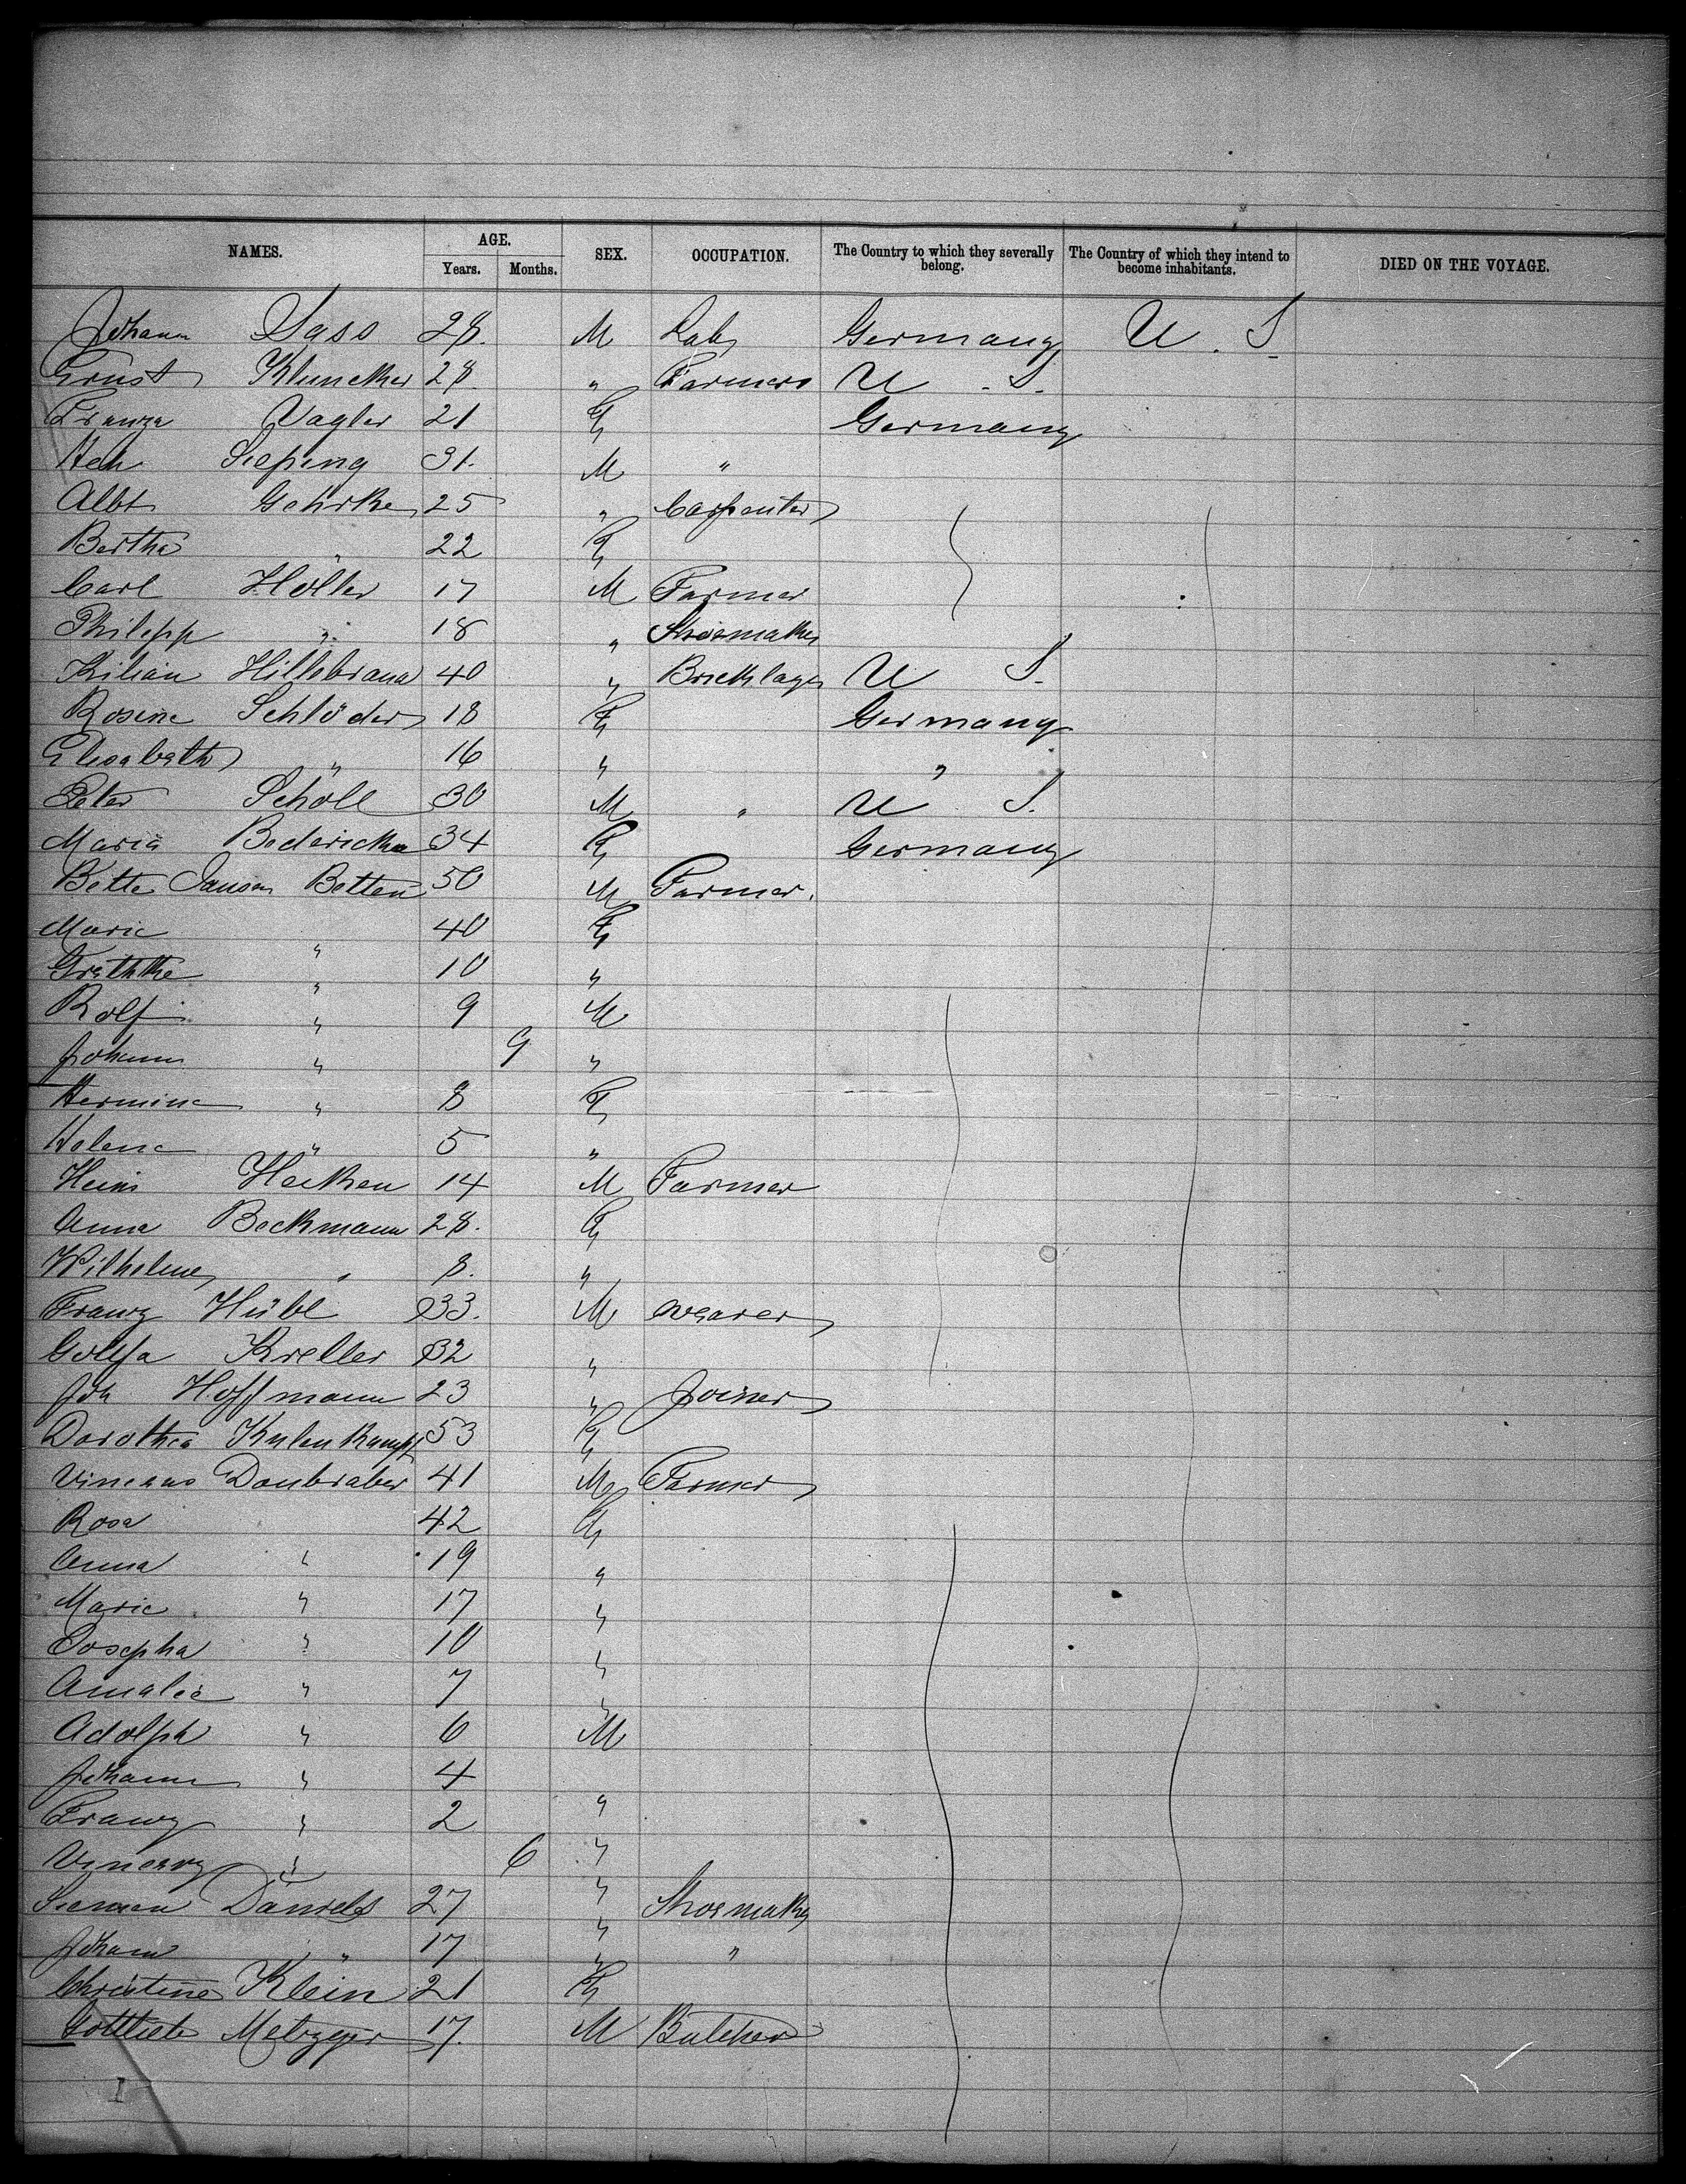 NAMES. AGE. SEX. OCCUPATION. The Country to which they severally belong. The Country of which they intend to become inhabitants. DIED ON THE VOYAGE.
Years. Months.
Johann Sass 28. M Lab Germany U. S.
Ernst Kluncker 28. " Farmers U. S.
Franza Vagler 21 F Germany
Hch Sieping 31. M "
Albt Gehrke 25 " Carpenter
Bertha " 22 F
Carl Höller 17 M Farmer
Philipp " 18 " Shoemaker
Kilian Hillebrand 40 " Bricklayer U S.
Rosine Schlöder 18 F Germany
Elisabeth " 16 " "
Peter Scholl 30 M " U S.
Maria Bedericka 34 F Germany
Bette Janssen Betten 50 M Farmer.
Marie " 40 F
Grethke " 10 "
Rolf " 9 M
Johann " 9 "
Hermine " 8 F
Helene " 5 "
Heins Heiken 14 M Farmer
Anna Beckmann 28. F
Wilhelme " 8. "
Franz Hübl 33. M weaver
Kreller 32 "
Joh Hoffmann 23 " Joiner
Dorothea Kulenkampf 53 F
Doubraber 41 M Farmer
Rosa 42 F
Anna " 19 "
Marie " 17 "
Josepha " 10 "
Amalie " 7 "
Adolph " 6 M
Johann " 4 "
Franz " 2 "
" 6 "
Daniels 27 " Shoemaker
Johann " 17 " "
Christine Klein 21 F
Gottlieb Metzger 17. M Butcher
I